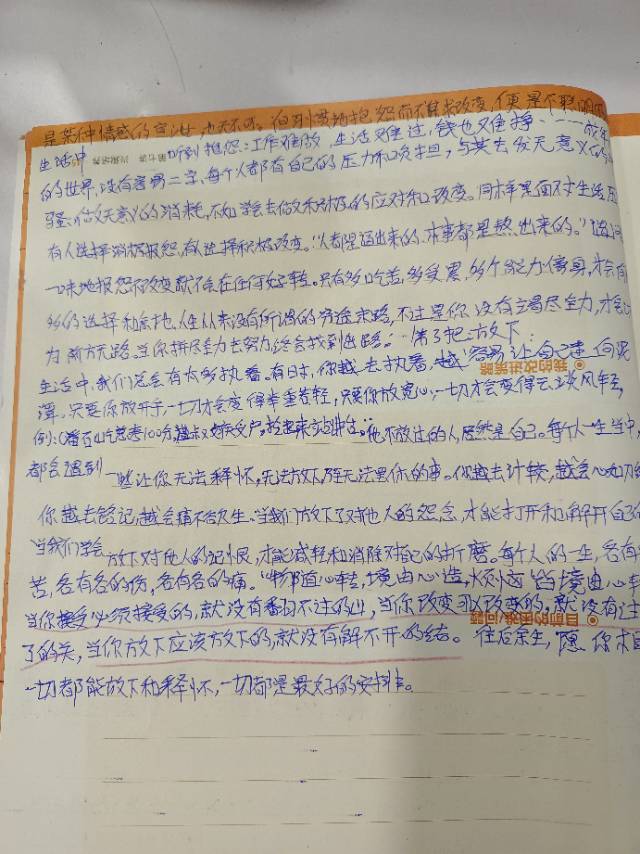 是某种情感的宣泄,也无不可。但习惯地抱怨而不谋求改变,便是不聪明的
生活中 听到抱怨:工作难做,生活又难过,钱也又难挣……成年
的世界,没有容易二字,每个人都有自己的压力和负担,与其去发无意义的
骚,做无意义的消耗,不如学会去做积极的应对和改变。同样是面对生活压
有人选择消极报怨,有人选择积极改变。"人都是逼出来的,本事都是熬出来的。"
一味地报怨不改变就不会在任何好转。只有多吃苦,多受累,多个能力傍身,才会有
多的选择和余地,人生从来没有所谓的穷途末路,不过是你没有竭尽全力,才会
为前方无路。当你拼尽全力去努力,终会找到出路。 第3把:放下:
生活中,我们总会有太多执着。有时,你越去执着,越容易让自己迷 何
潭。只要你放开手,一切才会变得举重若轻,只要你放宽心,一切才会变得云淡风轻
例: 考100分 他不放过的人,居然是自己。每个人一生当中,
都会遇到一些让你无法释怀,无法放下,乃至无法思你的事。你越去计较,越会心如刀
你越去铭记,越会痛不欲生。当我们放下了对他人的怨念,才能打开和解开自己
当我们学会放下对他人的记恨,才能减轻和消除对自己的折磨。每个人的一生,各有
苦,各有各的伤,各有各的痛。"物随心转,境由心造,烦恼皆境由心
当你接受必须接受的,就没有看翻不过的山,当你改变可以改变的,就没有过
了的关,当你放下应该放下的,就没有解不开的结。往后余生,愿你
一切都能放下和释怀,一切都是最好的安排。
我的改进策略
目前的困难/问题